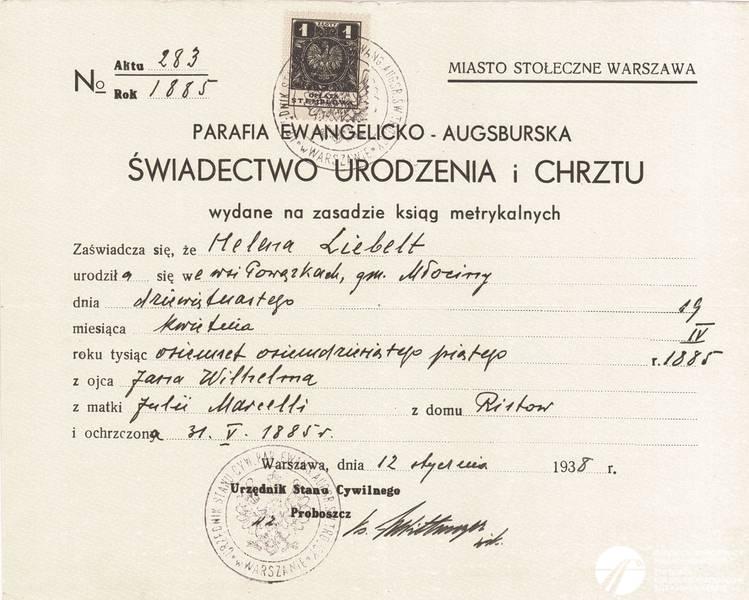 No Aktu 283
Rok 1885
1 ZŁOTY 1
OPŁATA
STEMPLOWA
MIASTO STOŁECZNE WARSZAWA
PARAFIA EWANGELICKO - AUGSBURSKA
ŚWIADECTWO URODZENIA i CHRZTU
wydane na zasadzie ksiąg metrykalnych
Zaświadcza się, że Helena Liebelt
urodziła się we wsi Powązkach, gm. Młociny
dnia dziewiętnastego 19
miesiąca kwietnia IV
roku tysiąc osiemset osiemdziesiątego piątego r. 1885
z ojca Jana Wilhelma
z matki Julii Marcelli z domu Ristow
i ochrzczona 31. V. 1885 r.
Warszawa, dnia 12 stycznia 1938 r.
Urzędnik Stanu Cywilnego
Proboszcz
wz.
ks.